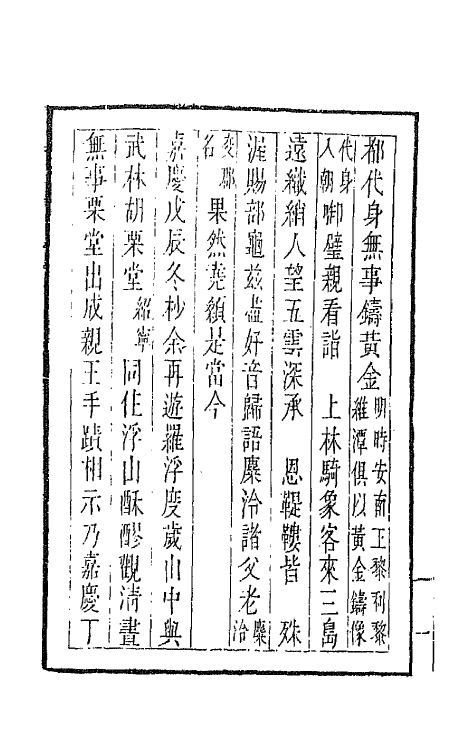 都代身無事鑄黃金明時安南王黎利黎維潭俱以黃金鑄像
代身入朝啣璧親看詣　上林騎象客來三島
遠纖綃人望五雲深承　恩鞮鞻皆　殊
渥賜部龜茲盡好音歸語麋泠諸父老麋泠
交郡名果然堯顙是當今
嘉慶戊辰冬杪余再遊羅浮度歲山中與
武林胡栗堂紹寧同住浮山酥醪觀清晝
無事栗堂出成親王手蹟相示乃嘉慶丁